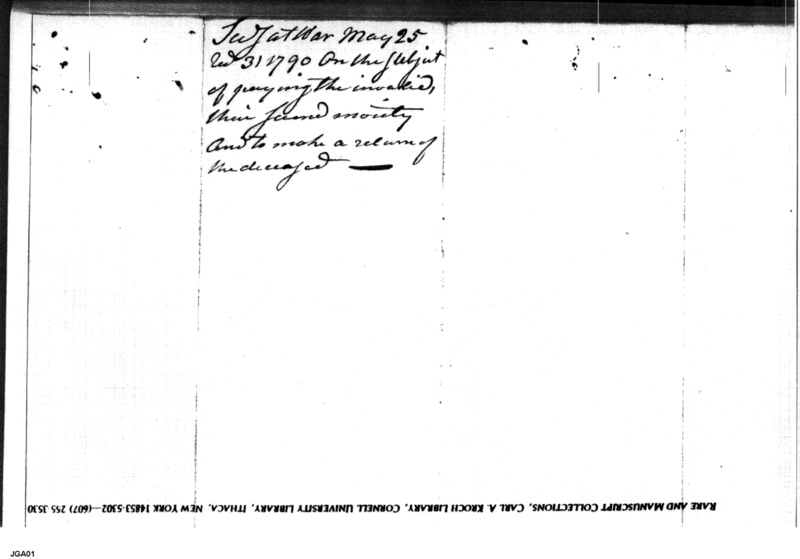 Secy at War May 25
Recd 31 1790 On the subject
of paying the invalid,
their second moiety
And to make a return of
the deceased —
RARE AND MANUSCRIPT COLLECTIONS, CARL A. KROCH LIBRARY, CORNELL UNIVERSITY LIBRARY, ITHACA, NEW YORK 14853-5302—(607) 255 3530
JGA01